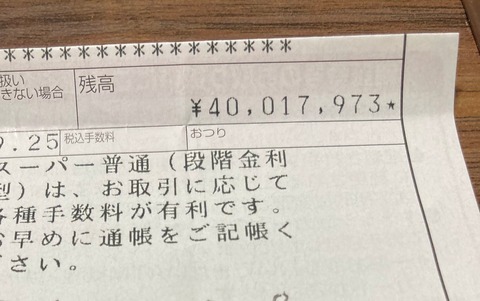 ******************
扱い
きない場合
残高
¥40,017,973★
9.25
税込手数料
おつり
スーパー普通(段階金利
型)は、お取引に応じて
各種手数料が有利です。
お早めに通帳をご記帳く
ださい。